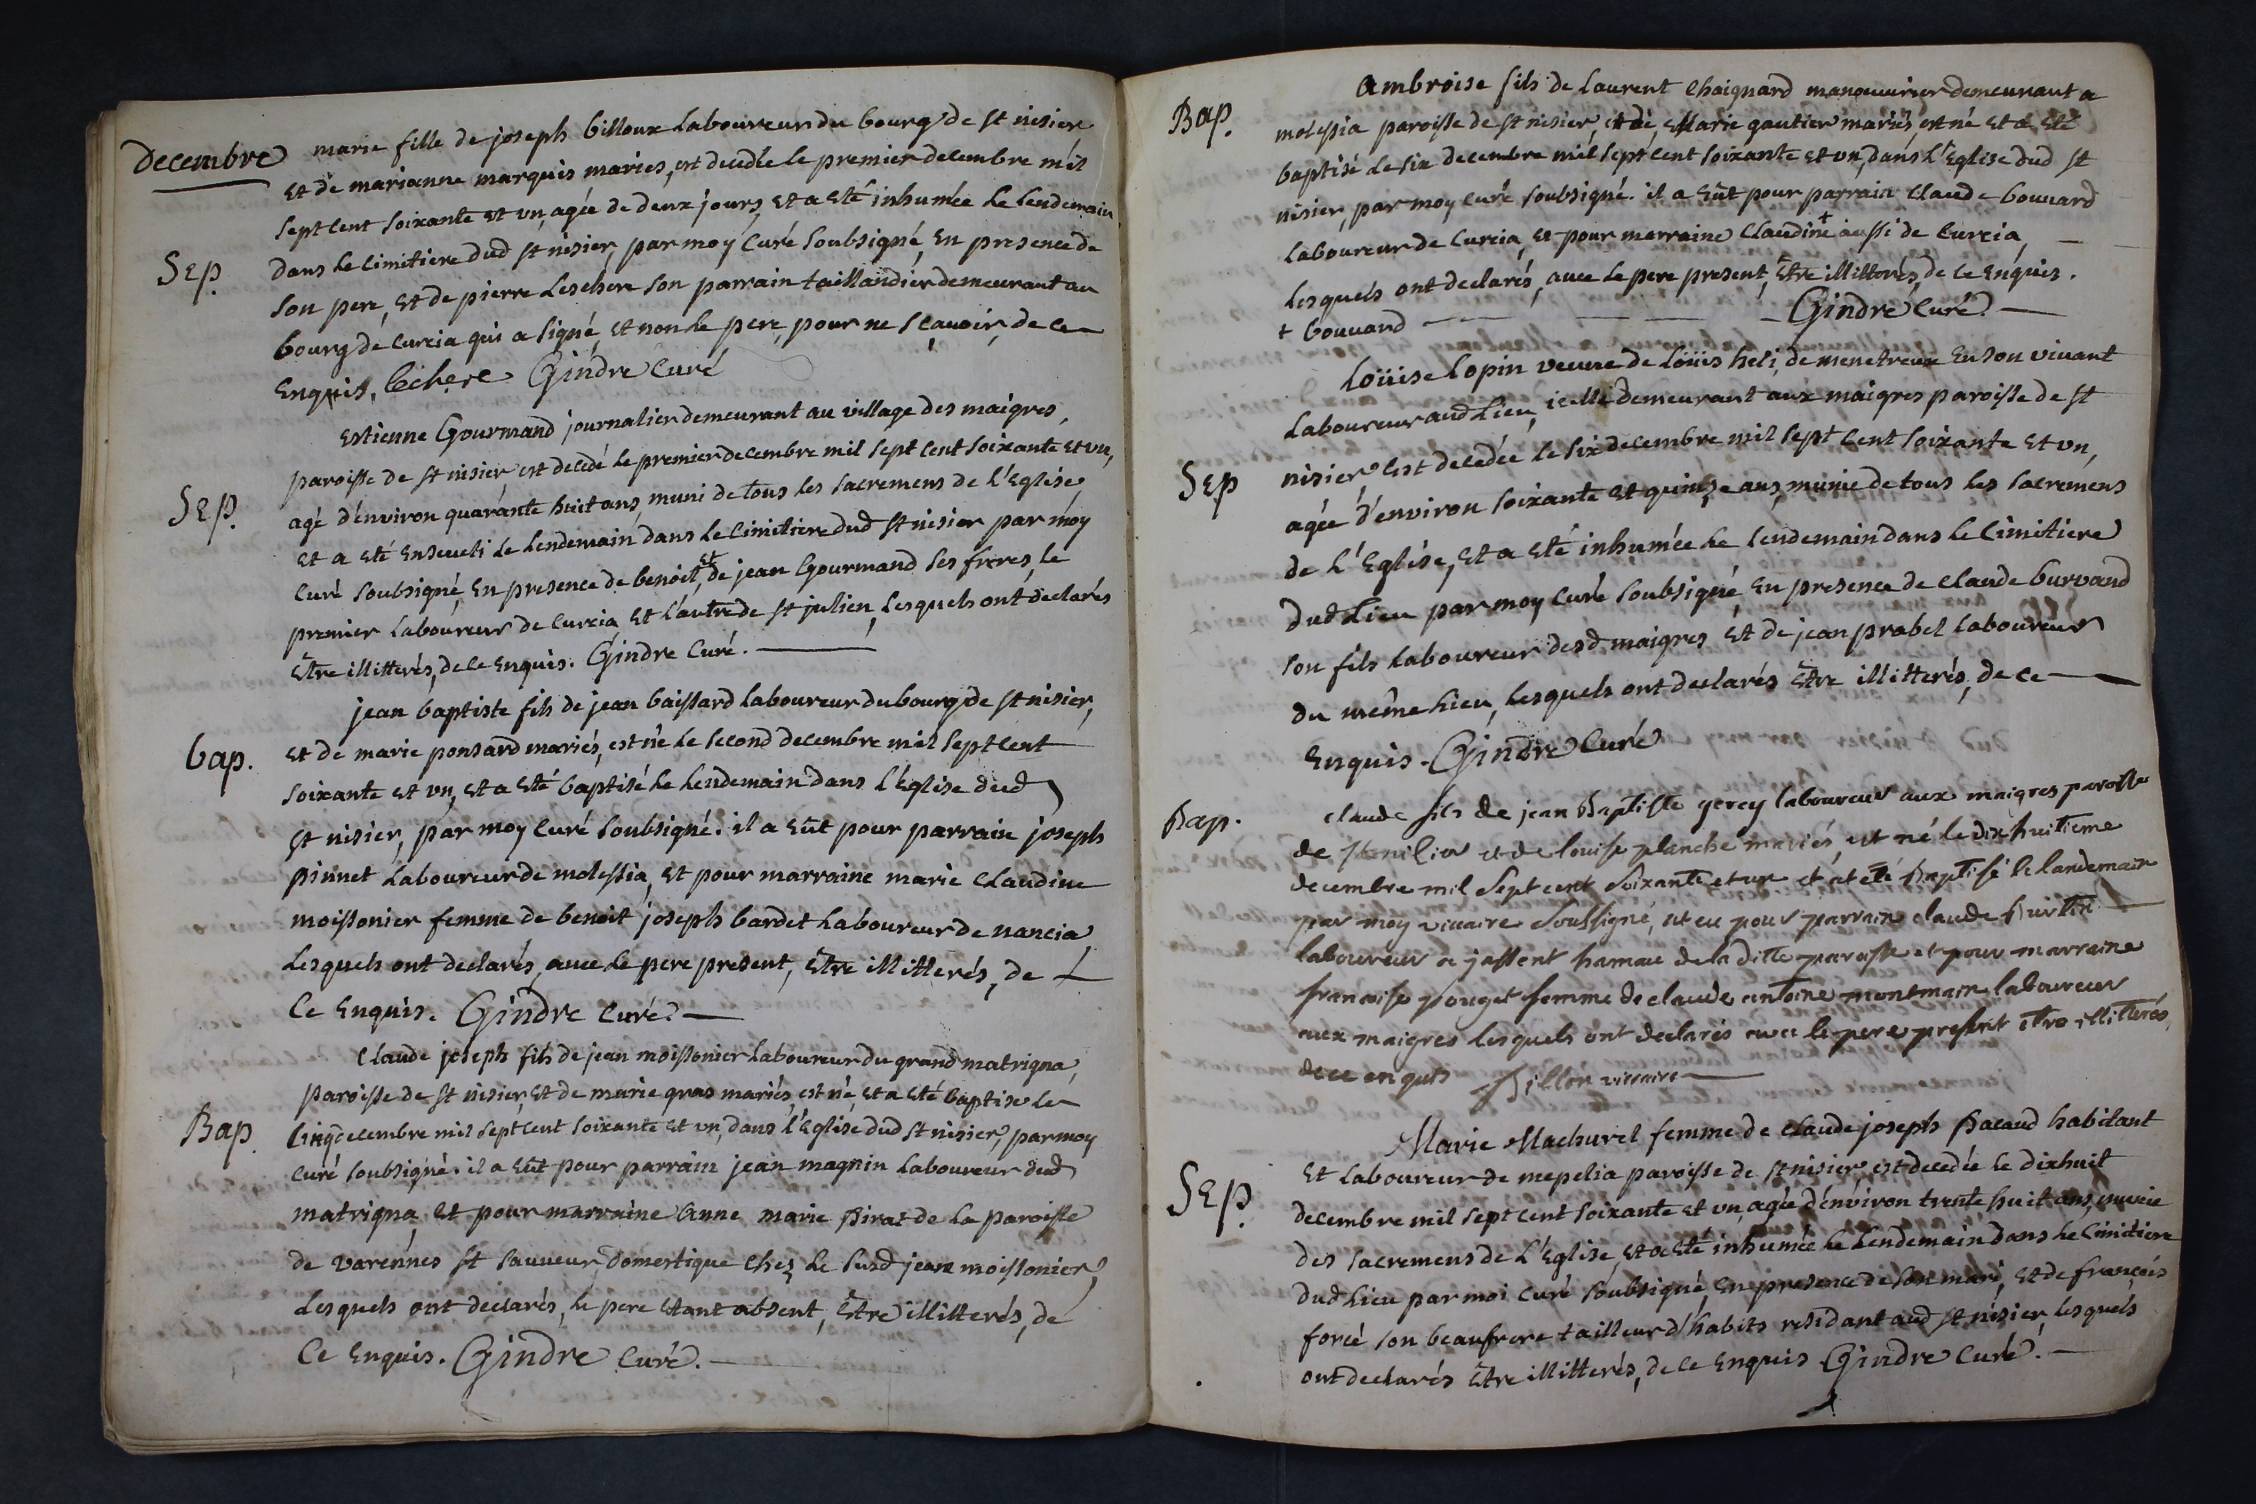 Decembre marie fille de joseph billoux Laboureur du bourg de st nisier
et de marianne marquis mariés, est decedée le premier decembre mil
sept cent soixante et un, agée de deux jours, et a eté inhumée le lendemain
Sep. dans le cimitiere dud st nisier, par moy Curé soubsigné, en presence de
son pere, et de pierre Leschere son parrain taillandier demeurant au
bourg de Curcia qui a signé, et non le pere, pour ne sçauoir, de ce
Enquis. Lechere Gindre Curé
Estienne Gourmand journalier demeurant au village des maigres,
paroisse de st nisier, est decedé le premier decembre mil sept cent soixante et vn,
Sep. agé d'environ quarante huit ans, muni de tous les sacremens de l'Eglise,
et a eté Enseueli le lendemain dans le cimitiere dud st nisier par moy
Curé soubsigné, en presence de benoit, et de jean Gourmand ses freres, le
premier Laboureur de Curcia et l'autre de st julien, Lesquels ont declarés
Etre illitterés, de ce Enquis. Gindre Curé.
jean baptiste fils de jean baissard laboureur du bourg de st nisier,
bap. et de marie ponsard mariés, est né le second decembre mil sept cent
soixante et vn, et a eté baptisé le lendemain dans l'Eglise dud
st nisier, par moy Curé soubsigné. il a eût pour parrain joseph
pinnet Laboureur de molessia, et pour marraine marie Claudine
moissonier femme de benoit joseph bardet Laboureur de nancia,
Lesquels ont declarés, auec le pere present, Etre illitterés, de
Ce Enquis. Gindre Curé.
Claude joseph fils de jean moissonier Laboureur du grand matrigna,
paroisse de st nisier, et de marie gras mariés, est né, et a eté baptisé le
Bap. Cinq decembre mil sept cent soixante et vn, dans l'Eglise dud st nisier, par moy
curé soubsigné. il a eût pour parrain jean magnin Laboureur dud
matrigna, et pour marraine Anne marie pirat de la paroisse
de varennes st sauueur, domestique chez Le susd jean moissonier,
Lesquels ont declarés, le pere etant absent, Etre illitterés, de
Ce Enquis. Gindre Curé.
Ambroise fils de Laurent Chaignard manouurier demeurant a
Bap. molessia paroisse de st nisier, et de Marie gautier mariés, est né et a eté
baptisé Le six decembre mil sept cent soixante et vn, dans l'Eglise dud st
nisier, par moy Curé soubsigné. il a eût pour parrain Claude bouuard
Laboureur de Curcia, et pour marraine Claudine + aussi de Curcia,
Lesquels ont declarés, auec Le pere present, Etre illitterés, de ce Enquis.
+ bouuard Gindre Curé
Loüise Lopin veuue de Loüis heli, de menetreux En son viuant
Laboureur aud Lieu, icelle demeurant aux maigres paroisse de st
Sep nisier, est decedée le six decembre mil sept cent soixante et vn,
agée d'environ soixante et quinze ans, munie de tous les sacremens
de l'Eglise, et a eté inhumée le lendemain dans le Cimitiere
dud Lieu par moy Curé soubsigné en presence de Claude burvand
son fils Laboureur desd maigres et de jean prabel Laboureur
du même Lieu, Lesquels ont declarés Etre illitterés, de ce
Enquis. Gindre Curé
Bap. claude fils de jean Baptiste gerey laboureur aux maigres paroisse
de et de louise planche mariés, est né le dix huitieme
decembre mil Sept cent Soixante et un et at eté Baptisé le landemain
par moy vicaire Soussigné, at eu pour parrain claude
laboureur a jassent hamau de la ditte paroisse et pour marraine
francoise pouget femme de claude antoine montmain laboureur
aux maigres lesquels ont declarés avec le pere present être illitterés,
de ce enquis Billon vicaire
Marie Machurel femme de Claude joseph Bacaud habitant
et Laboureur de mepelia paroisse de st nisier, est decedée le dixhuit
Sep. decembre mil sept cent soixante et vn, agée d'énviron trente huit ans, munie
des sacremens de L'Eglise, et a eté inhumée le Lendemain dans le Cimitiere
dud Lieu par moi Curé soubsigné, en presence de son mari, et de françois
forcé son beaufrere tailleur d'habits residant aud st nisier, Lesquels
ont declarés Etre illitterés, de ce Enquis Gindre Curé.